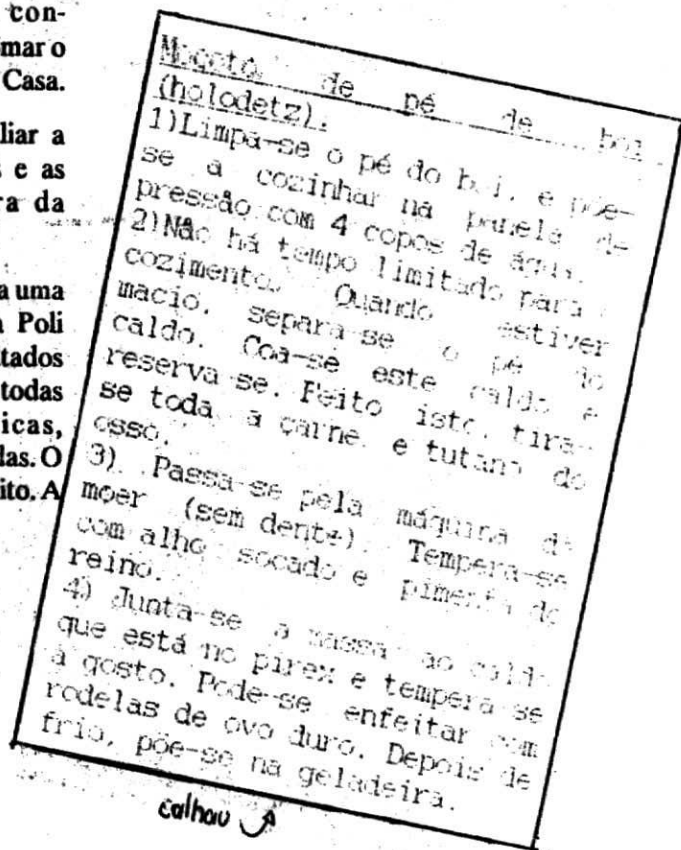 con-
mar o
Casa.
liar a
s e as
ra da
a uma
a Poli
tados
todas
icas,
las. O
ito. A
Mocotó de pé de boi
(holodetz):
1)Limpa-se o pé do boi, e põe-
se a cozinhar na panela de
pressão com 4 copos de água.
2)Não há tempo limitado para
cozimento. Quando estiver
macio, separa-se o pé do
caldo. Coa-se este caldo e
reserva-se. Feito isto, tira-
se toda a carne e tutano do
osso.
3) Passa-se pela máquina de
moer (sem dente). Tempera-se
com alho socado e pimenta do
reino.
4) Junta-se a massa ao caldo
que está no pirex e tempera-se
à gosto. Pode-se enfeitar com
rodelas de ovo duro. Depois de
frio, põe-se na geladeira.
calhau